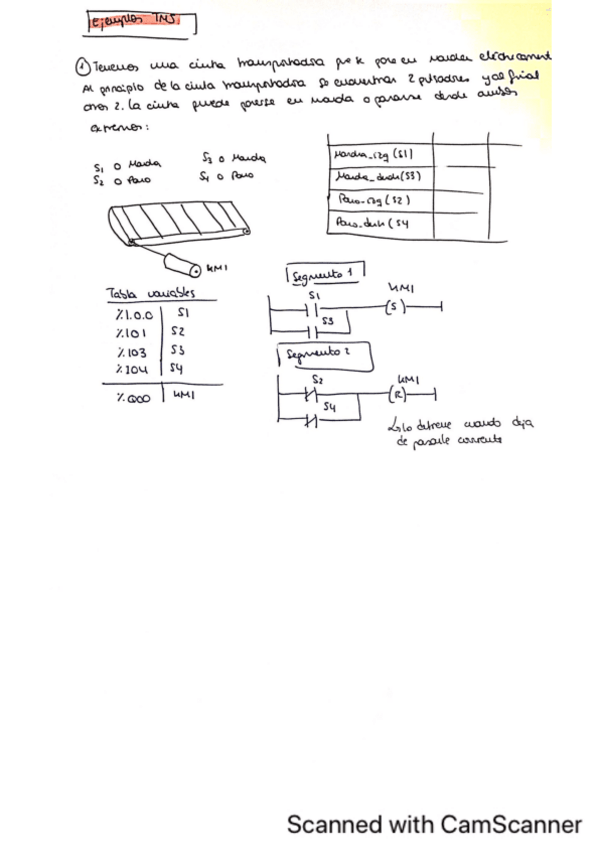 Ejemplos TMS
① Tenemos una cinta transportadora que se pone en marcha eléctricament
Al principio de la cinta transportadora se encuentran 2 pulsadores y al final
otros 2. La cinta puede ponerse en marcha o pararse desde ambos
extremos:
S1 o Marcha
S2 o Paro
S3 o Marcha
S4 o Paro
Marcha_izq (S1)
Marcha_dech(S3)
Paro_izq (S2)
Paro_dech (S4
KM1
Tabla variables
%1.0.0 S1
%101 S2
%103 S3
%104 S4
%Q00 KM1
Segmento 1
S1 KM1
(S)
S3
Segmento 2
S2 KM1
(R)
S4
lo detiene cuando deja
de pasarle corriente
Scanned with CamScanner